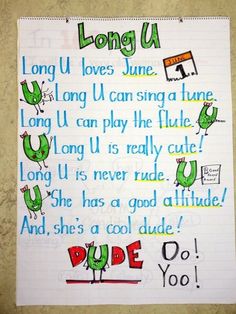 Long U
Long U loves June.
JUNE
1
Long U can sing a tune.
Long U can play the flute.
Long U is really cute!
Long U is never rude.
She has a good attitude!
And, she's a cool dude!
DUDE
Oo!
Yoo!